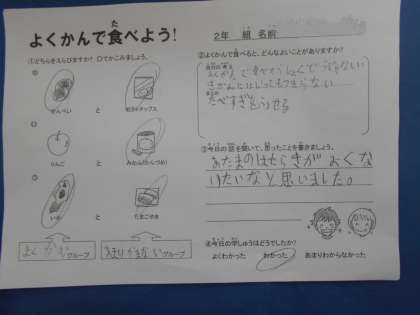 よくかんで食べよう!
2年 組 名前
①どちらをえらびますか? ○でかこみましょう。
せんべい と ポテトチップス
りんご と みかん(かんづめ)
いか と たまごやき
よくかむグループ
あまりかまないグループ
②よくかんで食べると、どんなよいことがありますか?
たべすぎ
③今日の話を聞いて、思ったことを書きましょう。
あたまのはたらきがよくな
りたいなと思いました。
④今日の学しゅうはどうでしたか?
よくわかった わかった あまりわからなかった